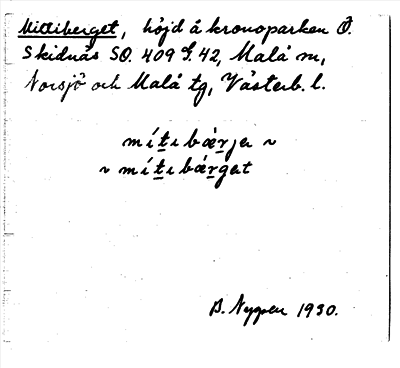 Mittiberget, höjd å kronoparken Ö.
Skidnäs SO. 409 S. 42, Malå sn,
Norsjö och Malå tg, Västerb. l.
mítιbærjeι ~
~ mítιbærget
B. Nygren 1930.